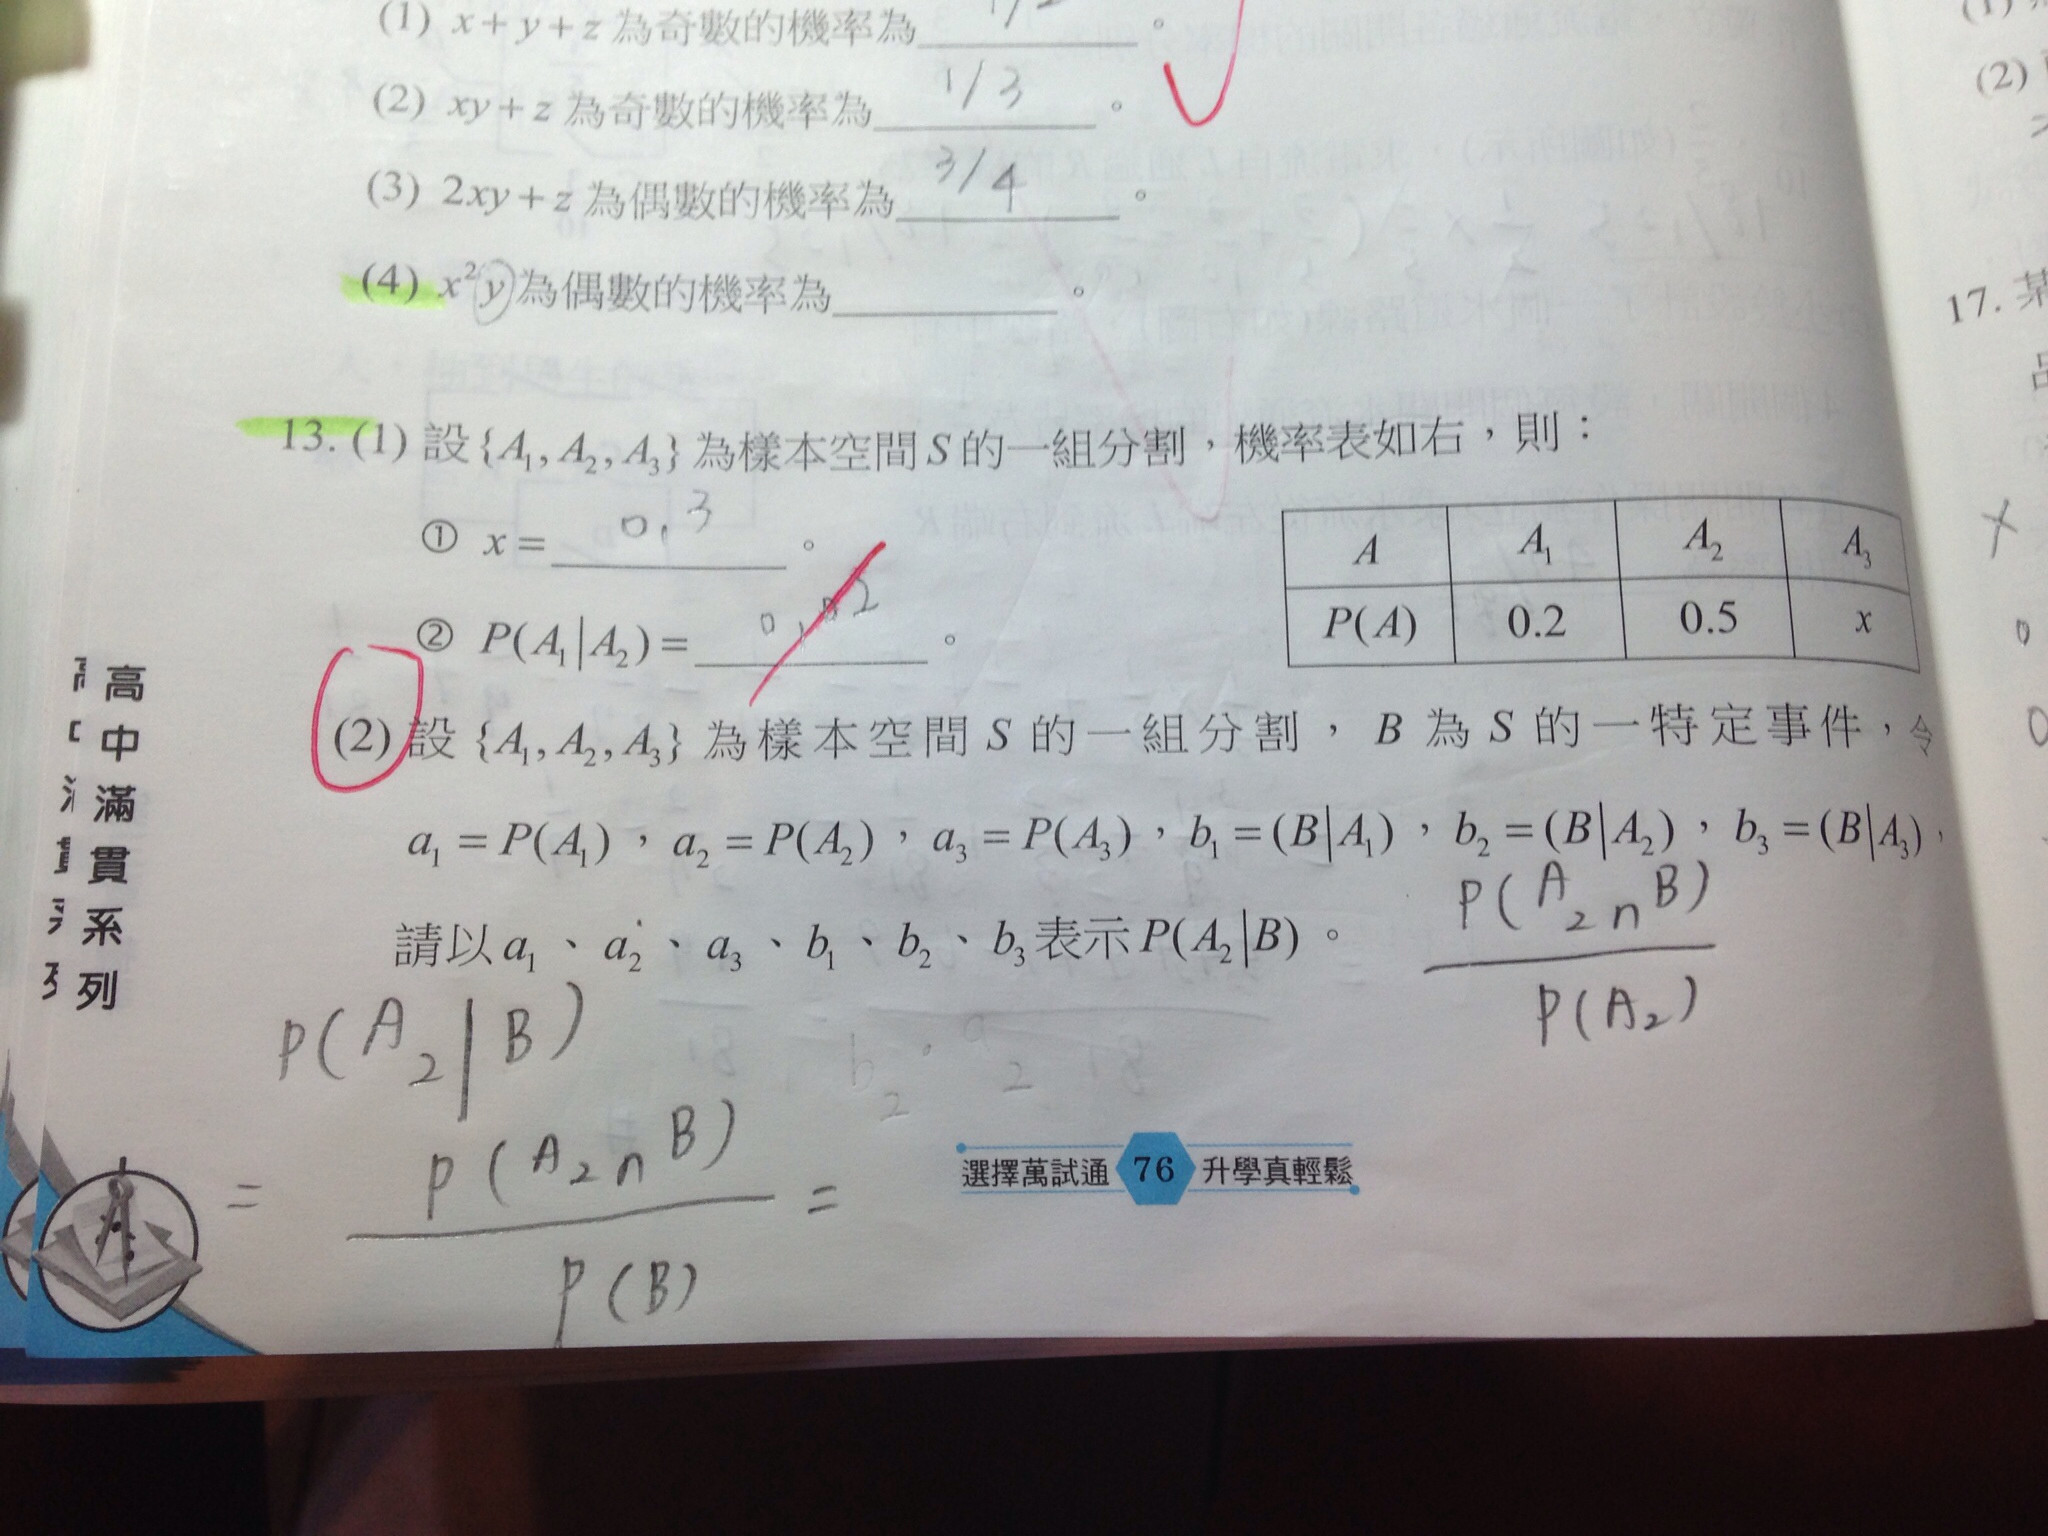 (1) x+y+z 為奇數的機率為 1/2 。
(2) xy+z 為奇數的機率為 1/3 。
(3) 2xy+z 為偶數的機率為 3/4 。
(4) x²y 為偶數的機率為 。
13. (1) 設{A₁, A₂, A₃}為樣本空間S的一組分割，機率表如右，則：
① x= 0.3 。
② P(A₁|A₂)= 。
A A₁ A₂ A₃
P(A) 0.2 0.5 x
(2) 設{A₁, A₂, A₃}為樣本空間S的一組分割，B為S的一特定事件，令
a₁=P(A₁)，a₂=P(A₂)，a₃=P(A₃)，b₁=(B|A₁)，b₂=(B|A₂)，b₃=(B|A₃)，
請以a₁、a₂、a₃、b₁、b₂、b₃表示P(A₂|B)。
P(A₂∩B)
P(A₂)
P(A₂|B)
= P(A₂∩B) =
P(B)
b₂·a₂
高中滿貫系列
選擇萬試通 76 升學真輕鬆
(1)
(2)
17. 某
品